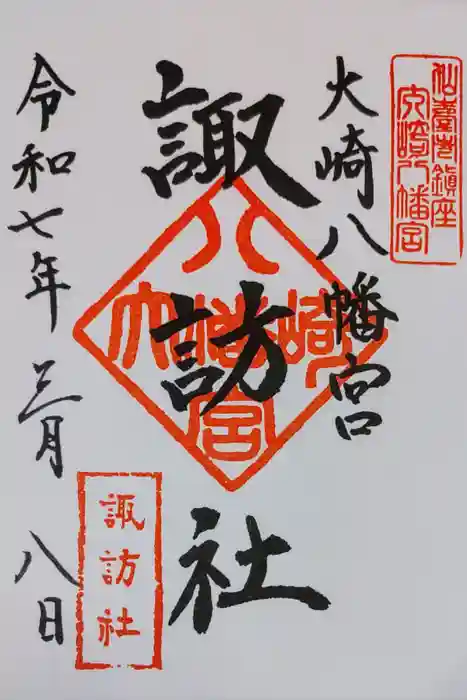 仙臺鎮座
大崎八幡宮
大崎八幡宮
諏訪社
八
大幡崎
宮
令和七年 三月 八日
諏訪社